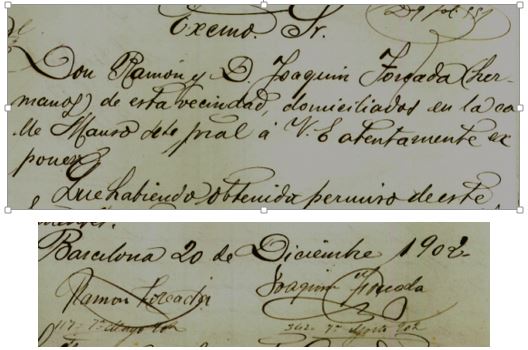 Excmo. Sr.
Don Ramón y D. Joaquin Forcada (her-
manos) de esta vecindad, domiciliados en la ca-
lle Manso á V. E. atentamente ex
ponen
Que habiendo obtenida permiso de este
Barcelona 20 de Diciembre 1902.
Ramon Forcada Joaquin Forcada